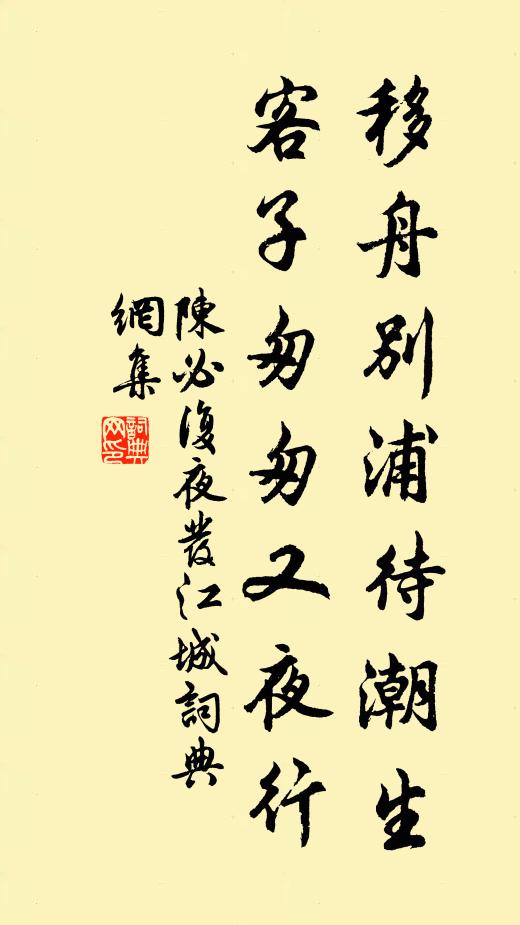 移舟別浦待潮生
客子匆匆又夜行
陳必復夜發江城詞典
網集
詞典
网印